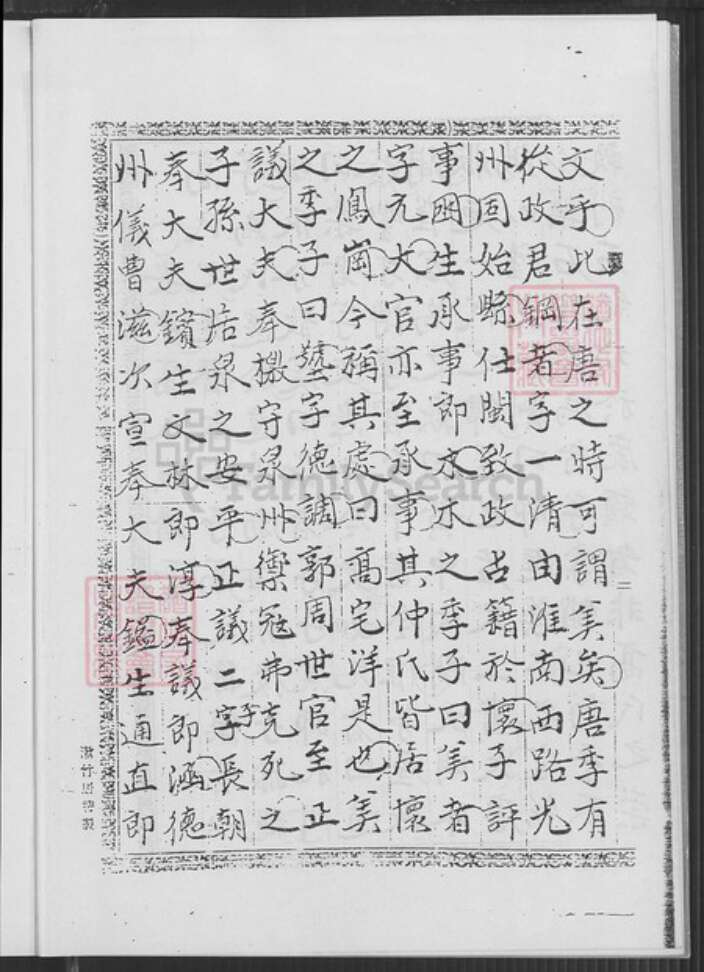 文乎比在唐之時可謂美矣唐季有
從政君鋼者字一清由淮南西路光
州固始縣仕閩致政占籍於懷子評
事圀生承事郎水水之季子曰美者
字元大官亦至承事其仲氏皆居懷
之鳳崗今稱其處曰高宅洋是也美
之季子曰壑字德調郭周世官至正
議大夫奉檄守泉州禦冦弗克死之
子孫世居泉之安平正議二子字長朝
奉大夫鑌生文林郎淳奉議郎涵德
州儀曹滋次宣奉大夫鎰生通直郎
二
FamilySearch